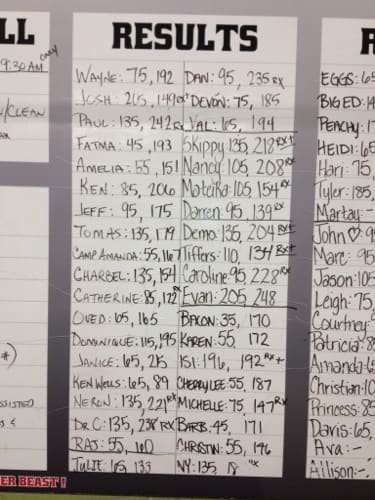 LL
RESULTS
R
9:30AM
WAYNE: 75, 192
JOSH: 205, 149RX
PAUL: 135, 242RX
FATMA: 45, 193
AMELIA: 55, 151
KEN: 85, 206
JEFF: 95, 175
TOMAS: 135, 179
CAMP AMANDA: 55, 167
CHARBEL: 135, 154
CATHERINE: 85, 172RX
OVED: 65, 165
DOMINIQUE: 115, 195
JANICE: 65, 215
KEN WELLS: 65, 89
NERON: 135, 221RX
DR C: 135, 238RX
RAJ: 55, 160
JULIE: 65, 133
DAN: 95, 235RX
DEVON: 75, 185
VAL: 65, 194
Skippy: 135, 218RX+
Nancy: 105, 208RX
Mateika: 105, 154RX
Darren: 95, 139RX
Demo: 135, 204RX+
Tiffers: 110, 134RX+
Caroline: 95, 228RX
Evan: 205, 248
BACON: 35, 170
KAREN: 55, 172
ISI: 196, 192RX+
CHERYLEE: 55, 187
MICHELLE: 75, 147RX
BARB: 45, 171
CHRISTIN: 55, 196
NY: 135,
EGGS: 65
BIG ED: 14
PEACHY: 17
HEIDI: 65
Hari: 75
Tyler: 185,
Martay: -
John ♡: 95
Marc: 95
Jason: 105
Leigh: 75,
Courtney:
Patricia: 85
Amanda: 6
Christian: 10
Princess: 85
Davis: 65,
Ava: -
Allison: -
/CLEAN
*)
SSISTED
ER BEAST!